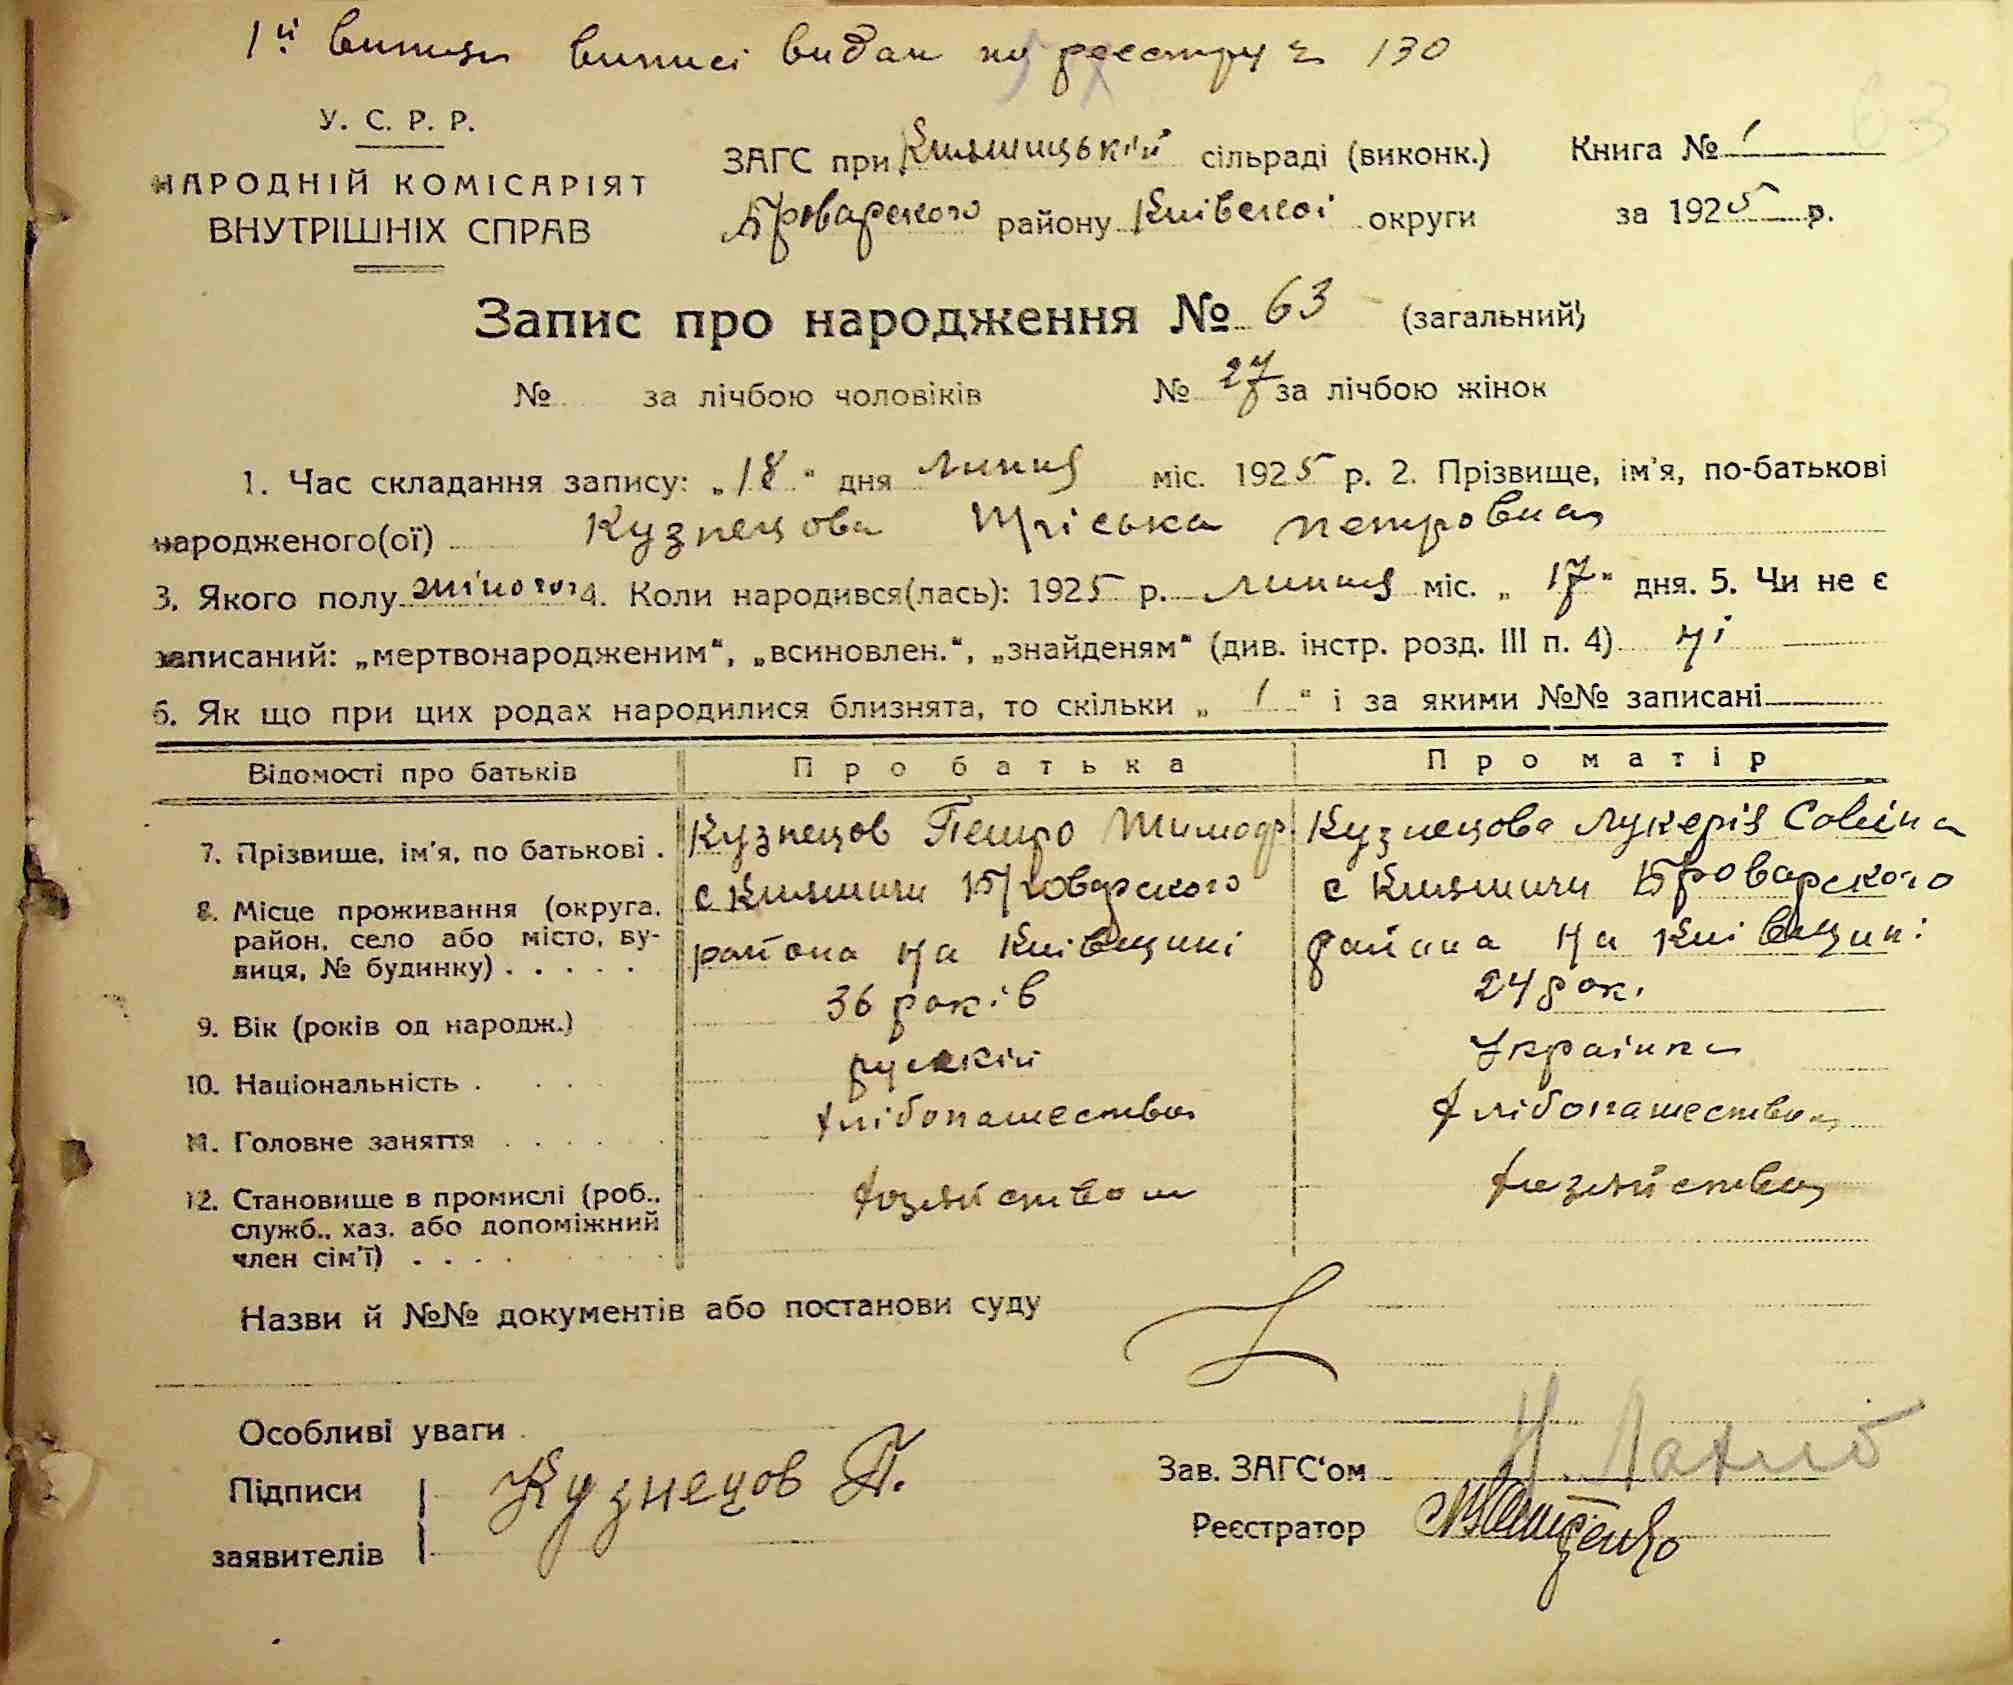 1й випис виписі видан по реєстру № 130
У. С. Р. Р.
НАРОДНІЙ КОМІСАРІЯТ
ВНУТРІШНІХ СПРАВ
ЗАГС при Княжицький сільраді (виконк.)
Броварского району Київскої округи
Книга № 1
за 1925 р.
63
Запис про народження № 63 (загальний)
№ за лічбою чоловіків № 27 за лічбою жінок
1. Час складання запису: „18“ дня липця міс. 1925 р. 2. Прізвище, ім'я, по-батькові
народженого(ої) Кузнецова петровна
3. Якого полу жіного 4. Коли народився(лась): 1925 р. липця міс. „17“ дня. 5. Чи не є
записаний: „мертвонародженим“, „всиновлен.“, „знайденям“ (див. інстр. розд. III п. 4) ні
6. Як що при цих родах народилися близнята, то скільки „1“ і за якими №№ записані
Відомості про батьків Про батька Про матір
7. Прізвище, ім'я, по батькові . Кузнецов Петро Тимоф. Кузнецова Лукерія Савіна
8. Місце проживання (округа, район, село або місто, вулиця, № будинку) . . . . .
с Княжичи Броварского
района на Київщині
с Княжичи Броварского
района на Київщині
9. Вік (років од народж.) 36 років 24 рок.
10. Національність . . . . руский Українка
11. Головне заняття . . . . хлібопашество хлібопашество
12. Становище в промислі (роб., служб., хаз. або допоміжний член сім'ї) . . . .
хозяйством хазяйство
Назви й №№ документів або постанови суду
Особливі уваги
Підписи
заявителів
Кузнецов П.
Зав. ЗАГС'ом
Реєстратор